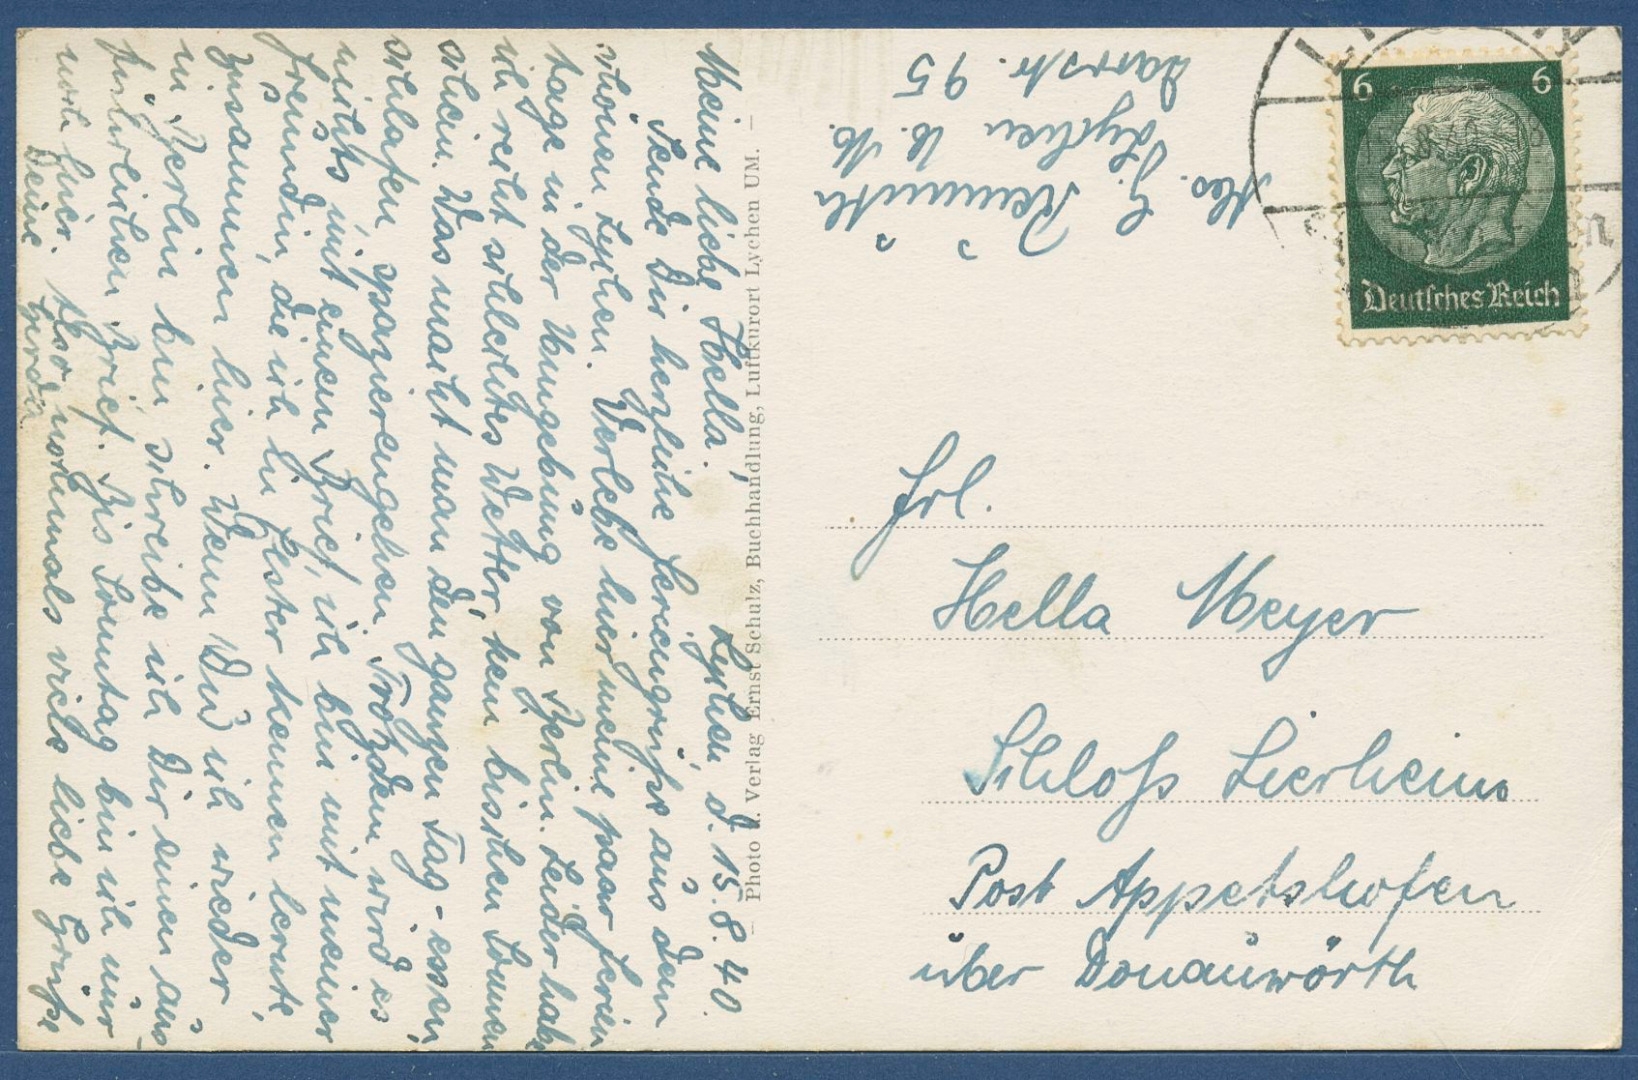 Lychen d. 15.8.40.
Meine liebe Hella!
Sende Dir herzliche Feriengrüße aus dem
schönen Lychen. Verlebe hier meine paar Ferien
tage in der Umgebung von Berlin. Leider habe
ich recht schlechtes Wetter, kein bisschen Sonnen
schein. Was macht man den ganzen Tag - essen,
schlafen, spazierengehen. Trotzdem wird es
nichts mit einem Brief, ich bin mit meiner
Freundin, die ich in Ester kennen lernte,
zusammen hier. Wenn Du ich wieder
in Berlin bin schreibe ich Dir einen aus
führlichen Brief. Bis Sonntag bin ich nur
noch hier. Also nochmals viele liebe Grüße
Deine Gerda
Abs. G.
Lychen U. M.
95
6 6
Deutsches Reich
Frl.
Hella Meyer
Schloß Lierheim
Post Appetshofen
über Donauwörth
— Photo u. Verlag Ernst Schulz, Buchhandlung, Luftkurort Lychen UM. —